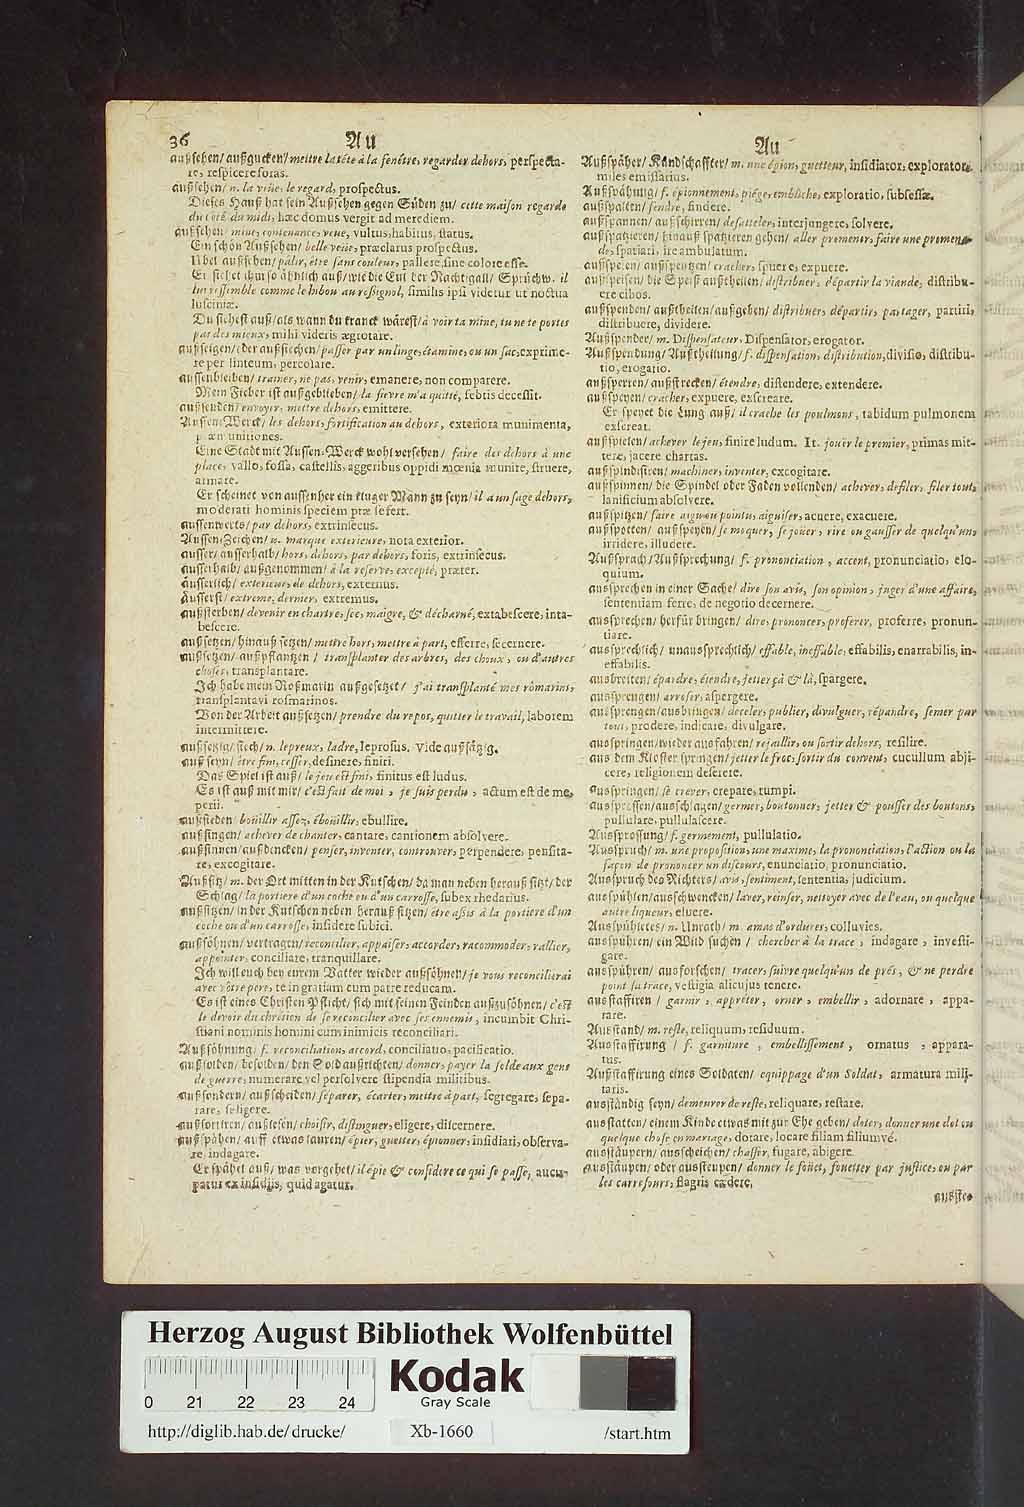 36 Au
außsehen/ außgucken/ mettre la tête à la fenêtre, regarder dehors, perspecta-
re, respicere foras.
außsehen/ n. la vûë, le regard, prospectus.
Dieses Hauß hat sein Außsehen gegen Süden zu/ cette maison regarde
du côté du midi, hæc domus vergit ad meridiem.
außsehen/ mine, contenance, veue, vultus, habitus, status.
Ein schön Außsehen/ belle veüe, præclarus prospectus.
Übel außsehen/ pâlir, être sans couleur, pallere, sine colore esse.
Er siehet ihm so ähnlich auß/ wie die Eul der Nachtgall/ Sprüchw. il
lui ressemble comme le hibou au roßignol, similis ipsi videtur ut noctua
lusciniæ.
Du siehest auß/ als wann du kranck wärest/ à voir ta mine, tu ne te portes
pas des mieux, mihi videris ægrotare.
außseigen/ oder außsiechen/ passer par un linge, étamine, ou un sac, exprime-
re per linteum, percolare.
aussenbleiben/ tramer, ne pas venir, emanere, non comparere.
Mein Fieber ist außgeblieben/ la fievre m'a quitté, febtis decessit.
außsenden/ envoyer, mettre dehors, emittere.
Aussen-Werck/ les dehors, fortification au dehors, exteriora munimenta,
præmunitiones.
Eine Stadt mit Aussen-Werck wohl versehen/ faire des dehors à une
place, vallo, fossa, castellis, aggeribus oppidi mœnia munire, struere,
armare.
Er scheinet von aussenher ein kluger Mann zu seyn/ il a un sage dehors,
moderati hominis speciem præ se fert.
aussenwerts/ par dehors, extrinsecus.
Aussen-Zeichen/ n. marque exterieure, nota exterior.
ausser/ ausserhalb/ hors, dehors, par dehors, foris, extrinsecus.
ausserhalb/ außgenommen/ à la reserve, excepté, præter.
äusserlich/ exterieur, de dehors, externus.
äusserst/ extreme, dernier, extremus.
außsterben/ devenir en chartre, sec, maigre, & décharné, extabescere, inta-
bescere.
außsetzen/ hinauß setzen/ mettre hors, mettre à part, efferre, secernere.
außsetzen/ außpflantzen/ transplanter des arbres, des choux, ou d'autres
choses, transplantare.
Ich habe mein Roßmarin außgesetzet/ j'ai transplanté mes rômarins,
transplantavi rosmarinos.
Von der Arbeit außsetzen/ prendre du repos, quitter le travail, laborem
intermittere.
außsetzig/ siech/ n. lepreux, ladre, leprosus. vide außsätzig.
auß seyn/ être fini, cesser, desinere, finiri.
Das Spiel ist auß/ le jeu est fini, finitus est ludus.
Es ist auß mit mir/ c'est fait de moi, je suis perdu, actum est de me,
perii.
außsieden/ boüillir assez, éboüillir, ebullire.
außsingen/ achever de chanter, cantare, cantionem absolvere.
außsinnen/ außdencken/ penser, inventer, controuver, perpendere, pensita-
re, excogitare.
Außsitz/ m. der Ort mitten in der Kutschen/ da man neben herauß sitzt/ der
Schlag/ la portiere d'un coche ou d'un carrosse, subex rhedarius.
außsitzen/ in der Kutschen neben herauß sitzen/ être assis à la portiere d'un
coche ou d'un carrosse, insidere subici.
außsöhnen/ vertragen/ reconcilier, appaiser, accorder, racommoder, rallier,
appointer, conciliare, tranquillare.
Ich will euch bey eurem Vatter wieder außsöhnen/ je vous reconcilierai
avec vôtre pere, te in gratiam cum patre reducam.
Es ist eines Christen Pflicht/ sich mit seinen Feinden außzusöhnen/ c'est
le devoir du chrétien de se reconcilier avec ses ennemis, incumbit Chri-
stiani nominis homini cum inimicis reconciliari.
Außsöhnung/ f. reconciliation, accord, conciliatio, pacificatio.
außsolden/ besolden/ den Sold außrichten/ donner, payer la solde aux gens
de guerre, numerare vel persolvere stipendia militibus.
außsondern/ außscheiden/ séparer, écarter, mettre à part, segregare, sepa-
rare, seligere.
außsortiren/ außlesen/ choisir, distinguer, eligere, discernere.
außspähen/ auff etwas lauren/ épier, guetter, épionner, insidiari, observa-
re, indagare.
Er spähet auß/ was vorgehet/ il épie & considere ce qui se passe, aucu-
patur ex insidiis, quid agatur.
Au
Außspäher/ Kundschaffter/ m. une épion, guetteur, insidiator, explorator,
miles emissarius.
Außspähung/ f. épionnement, piége, embûche, exploratio, subsessæ.
außspalten/ fendre, findere.
außspannen/ außschirren/ desatteler, interjungere, solvere.
außspatzieren/ hinauß spatzieren gehen/ aller promener, faire une promena-
de, spatiari, ire ambulatum.
außspeien/ außspeutzen/ cracher, spuere, expuere.
außspeisen/ die Speiß außtheilen/ distribuer, départir la viande, distribu-
ere cibos.
außspenden/ außtheilen/ außgeben/ distribuer, départir, partager, partiri,
distribuere, dividere.
Außspender/ m. Dispensateur, Dispensator, erogator.
Außspendung/ Außtheilung/ f. dispensation, distribution, divisio, distribu-
tio, erogatio.
außsperren/ außstrecken/ étendre, distendere, extendere.
außspeyen/ cracher, expuere, exscreare.
Er speyet die Lung auß/ il crache les poulmons, tabidum pulmonem
exscreat.
außspielen/ achever le jeu, finire ludum. It. joüer le premier, primas mit-
tere, jacere chartas.
außspindisiren/ machiner, inventer, excogitare.
außspinnen/ die Spindel oder Faden vollenden/ achever, defiler, filer tout,
lanificium absolvere.
außspitzen/ faire aigu ou pointu, aiguiser, acuere, exacuere.
außspotten/ außspeyen/ se moquer, se joüer, rire ou gausser de quelqu'un,
irridere, illudere.
Außsprach/ Außsprechung/ f. prononciation, accent, pronunciatio, elo-
quium.
aussprechen in einer Sache/ dire son avis, son opinion, juger d'une affaire,
sententiam ferre, de negotio decernere.
aussprechen/ herfür bringen/ dire, prononcer, proferer, proferre, pronun-
tiare.
aussprechlich/ unaussprechlich/ effable, ineffable, effabilis, enarrabilis, in-
effabilis.
ausbreiten/ épardre, étendre, jetter çà & là, spargere.
aussprengen/ arroser, aspergere.
aussprengen/ ausbringen/ deceler, publier, divulguer, répandre, semer par
tout, prodere, indicare, divulgare.
ausspringen/ wieder ausfahren/ rejaillir, ou sortir dehors, resilire.
aus dem Kloster springen/ jetter le froc, sortir du convent, cucullum abji-
cere, religionem deserere.
ausspringen/ se crever, crepare, rumpi.
aussprossen/ ausschlagen/ germer, boutonner, jetter & pousser des boutons,
pullulare, pullulascere.
Aussprossung/ f. germement, pullulatio.
Ausspruch/ m. une proposition, une maxime, la prononciation, l'action ou la
façon de prononcer un discours, enunciatio, pronunciatio.
Ausspruch des Richters/ avis, sentiment, sententia, judicium.
ausspühlen/ ausschwencken/ laver, reinser, nettoyer avec de l'eau, ou quelque
autre liqueur, eluere.
Ausspühletes/ n. Unrath/ m. amas d'ordures, colluvies.
ausspühren/ ein Wild suchen/ chercher à la trace, indagare, investi-
gare.
ausspühren/ ausforschen/ tracer, suivre quelqu'un de prés, & ne perdre
point sa trace, vestigia alicujus tenere.
ausstaffiren/ garnir, appréter, orner, embellir, adornare, appa-
rare.
Ausstand/ m. reste, reliquum, residuum.
Ausstaffirung/ f. garniture, embellissement, ornatus, appara-
tus.
Ausstaffirung eines Soldaten/ equippage d'un Soldat, armatura mili-
taris.
ausständig seyn/ demeurer de reste, reliquare, restare.
ausstatten/ einem Kinde etwas mit zur Ehe geben/ doter, donner une dot ou
quelque chose en mariage, dotare, locare filiam filiumvé.
ausstäupern/ ausscheichen/ chasser, fugare, abigere.
ausstäupen/ oder aussteupen/ donner le foüet, fouetter par justice, ou par
les carrefours, flagris cædere.
ausste-
Herzog August Bibliothek Wolfenbüttel
0 21 22 23 24
Kodak
Gray Scale
http://diglib.hab.de/drucke/ Xb-1660 /start.htm